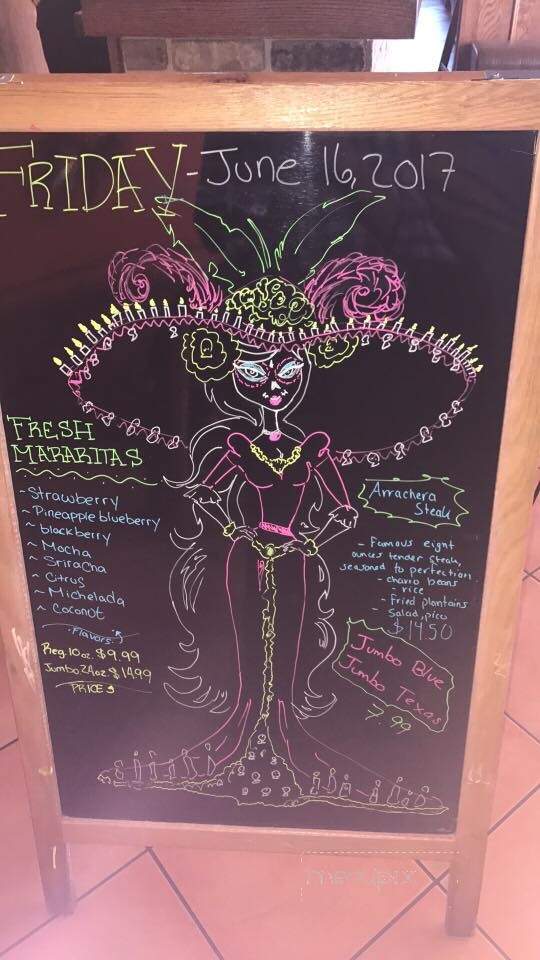 FRIDAY - June 16, 2017
FRESH
MARARITAS
- Strawberry
~ Pineapple blueberry
~ blackberry
~ Mocha
~ Sriracha
~ Citrus
~ Michelada
~ Coconut
Flavors
Reg. 10 oz. $9.99
Jumbo 24oz $14.99
PRICES
Arrachera
Steak
- Famous eight
ounces tender steak,
seasoned to perfection.
- charro beans
- rice
- Fried plantains
- Salad, pico
$14.50
Jumbo Blue
Jumbo Texas
7.99
menupix